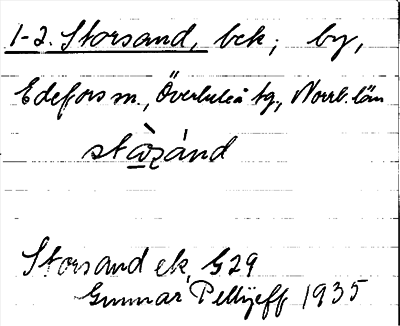 1-2. Storsand, bek; by,
Edefors sn., Överluleå tg., Norrb. län
stɑ̀ʂánd
Storsand ek, G29
Gunnar Pellijeff 1935